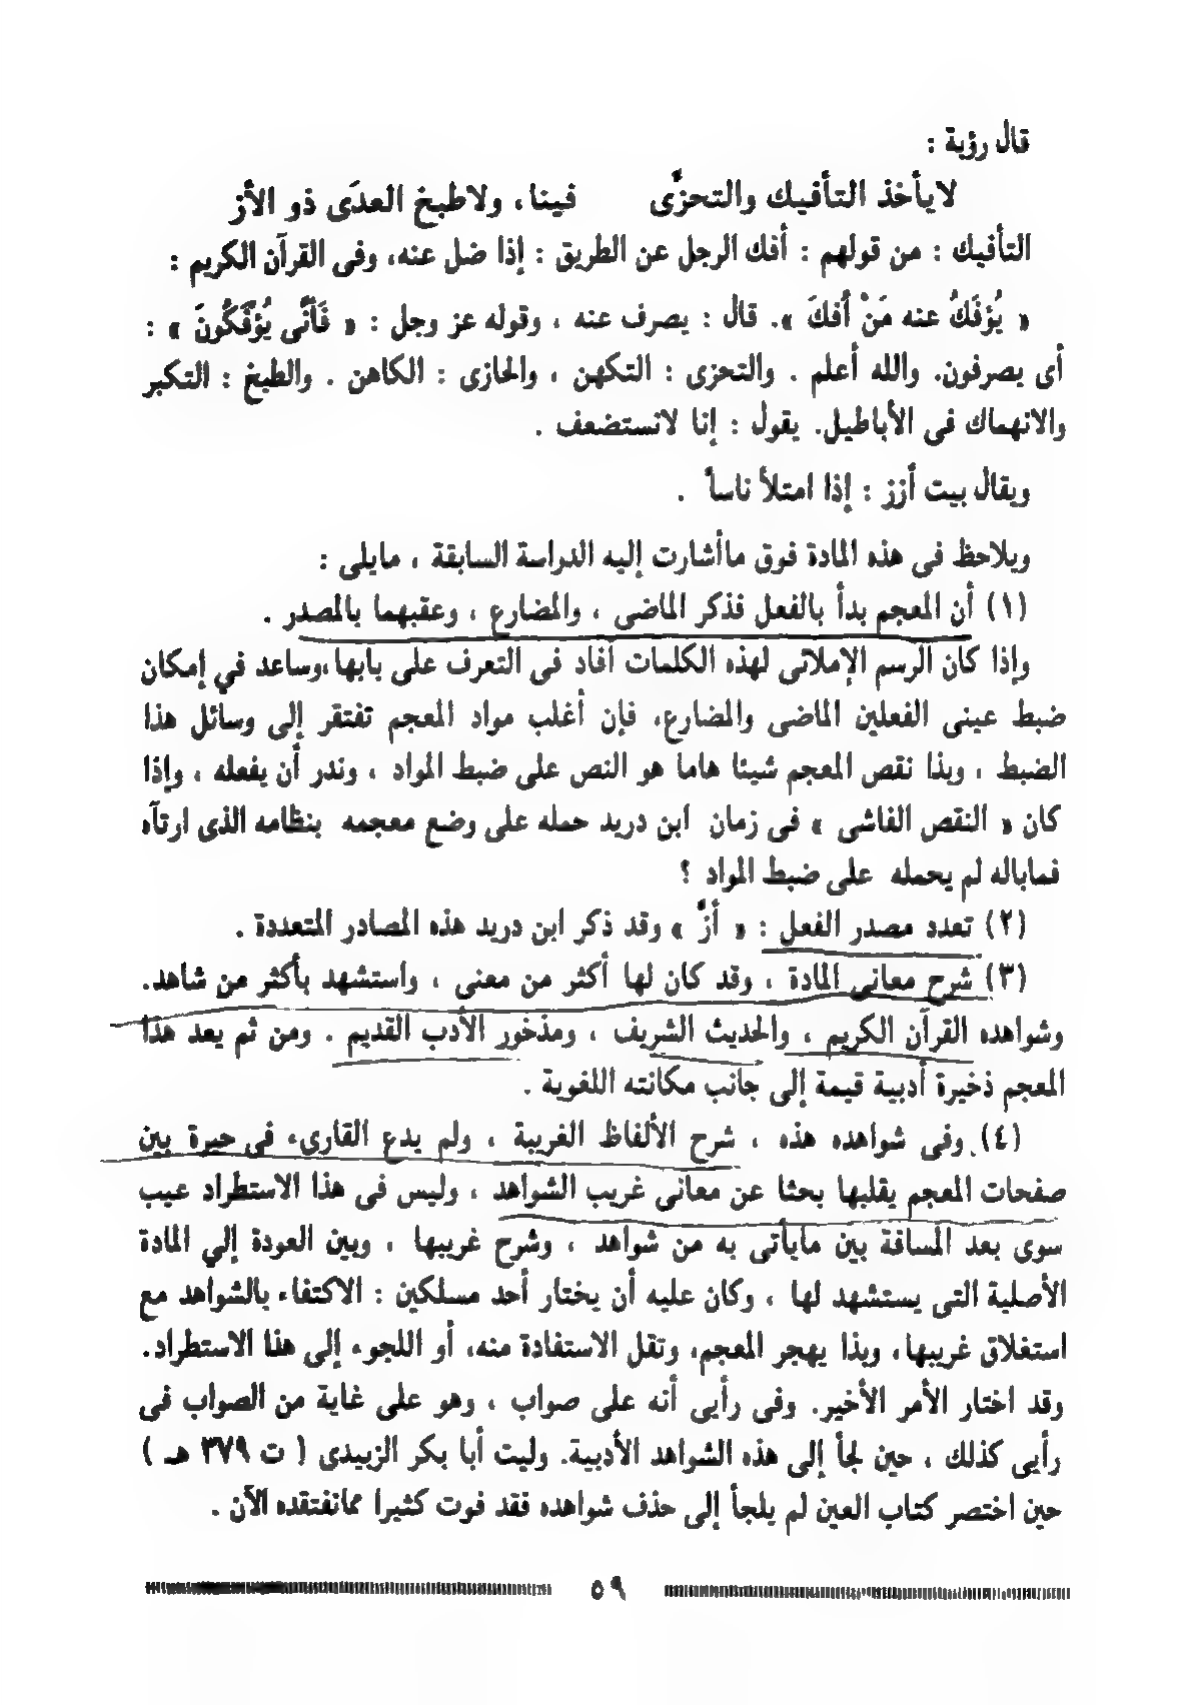 قال رؤبة :
لايأخذ التأفيك والتحزّى فينا، ولاطبخ العدَى ذو الأز
التأفيك : من قولهم : أفك الرجل عن الطريق : إذا ضل عنه، وفى القرآن الكريم :
« يُؤفَكُ عنه مَنْ أُفكَ ». قال : يصرف عنه ، وقوله عز وجل : « فَأَنَّى يُؤْفَكُونَ » :
أى يصرفون. والله أعلم . والتحزى : التكهن ، والحازى : الكاهن . والطبخ : التكبر
والانهماك فى الأباطيل. يقول : إنا لانستضعف .
ويقال بيت أزز : إذا امتلأ ناساً .
ويلاحظ فى هذه المادة فوق ماأشارت إليه الدراسة السابقة ، مايلى :
(١) أن المعجم بدأ بالفعل فذكر الماضى ، والمضارع ، وعقبهما بالمصدر .
وإذا كان الرسم الإملائى لهذه الكلمات أفاد فى التعرف على بابها،وساعد في إمكان
ضبط عينى الفعلين الماضى والمضارع، فإن أغلب مواد المعجم تفتقر إلى وسائل هذا
الضبط ، وبذا نقص المعجم شيئا هاما هو النص على ضبط المواد ، وندر أن يفعله ، وإذا
كان « النقص الفاشى » فى زمان ابن دريد حمله على وضع معجمه بنظامه الذى ارتآه
فماباله لم يحمله على ضبط المواد ؟
(٢) تعدد مصدر الفعل : « أزّ » وقد ذكر ابن دريد هذه المصادر المتعددة .
(٣) شرح معانى المادة ، وقد كان لها أكثر من معنى ، واستشهد بأكثر من شاهد.
وشواهده القرآن الكريم ، والحديث الشريف ، ومذخور الأدب القديم . ومن ثم يعد هذا
المعجم ذخيرة أدبية قيمة إلى جانب مكانته اللغوية .
(٤) وفى شواهده هذه ، شرح الألفاظ الغريبة ، ولم يدع القارىء فى حيرة بين
صفحات المعجم يقلبها بحثا عن معانى غريب الشواهد ، وليس فى هذا الاستطراد عيب
سوى بعد المسافة بين مايأتى به من شواهد ، وشرح غريبها ، وبين العودة إلي المادة
الأصلية التى يستشهد لها ، وكان عليه أن يختار أحد مسلكين : الاكتفاء بالشواهد مع
استغلاق غريبها، وبذا يهجر المعجم، وتقل الاستفادة منه، أو اللجوء إلى هذا الاستطراد.
وقد اختار الأمر الأخير. وفى رأيى أنه على صواب ، وهو على غاية من الصواب فى
رأيى كذلك ، حين لجأ إلى هذه الشواهد الأدبية. وليت أبا بكر الزبيدى ( ت ٣٧٩ هـ )
حين اختصر كتاب العين لم يلجأ إلى حذف شواهده فقد فوت كثيرا ممانفتقده الآن .
٥٩